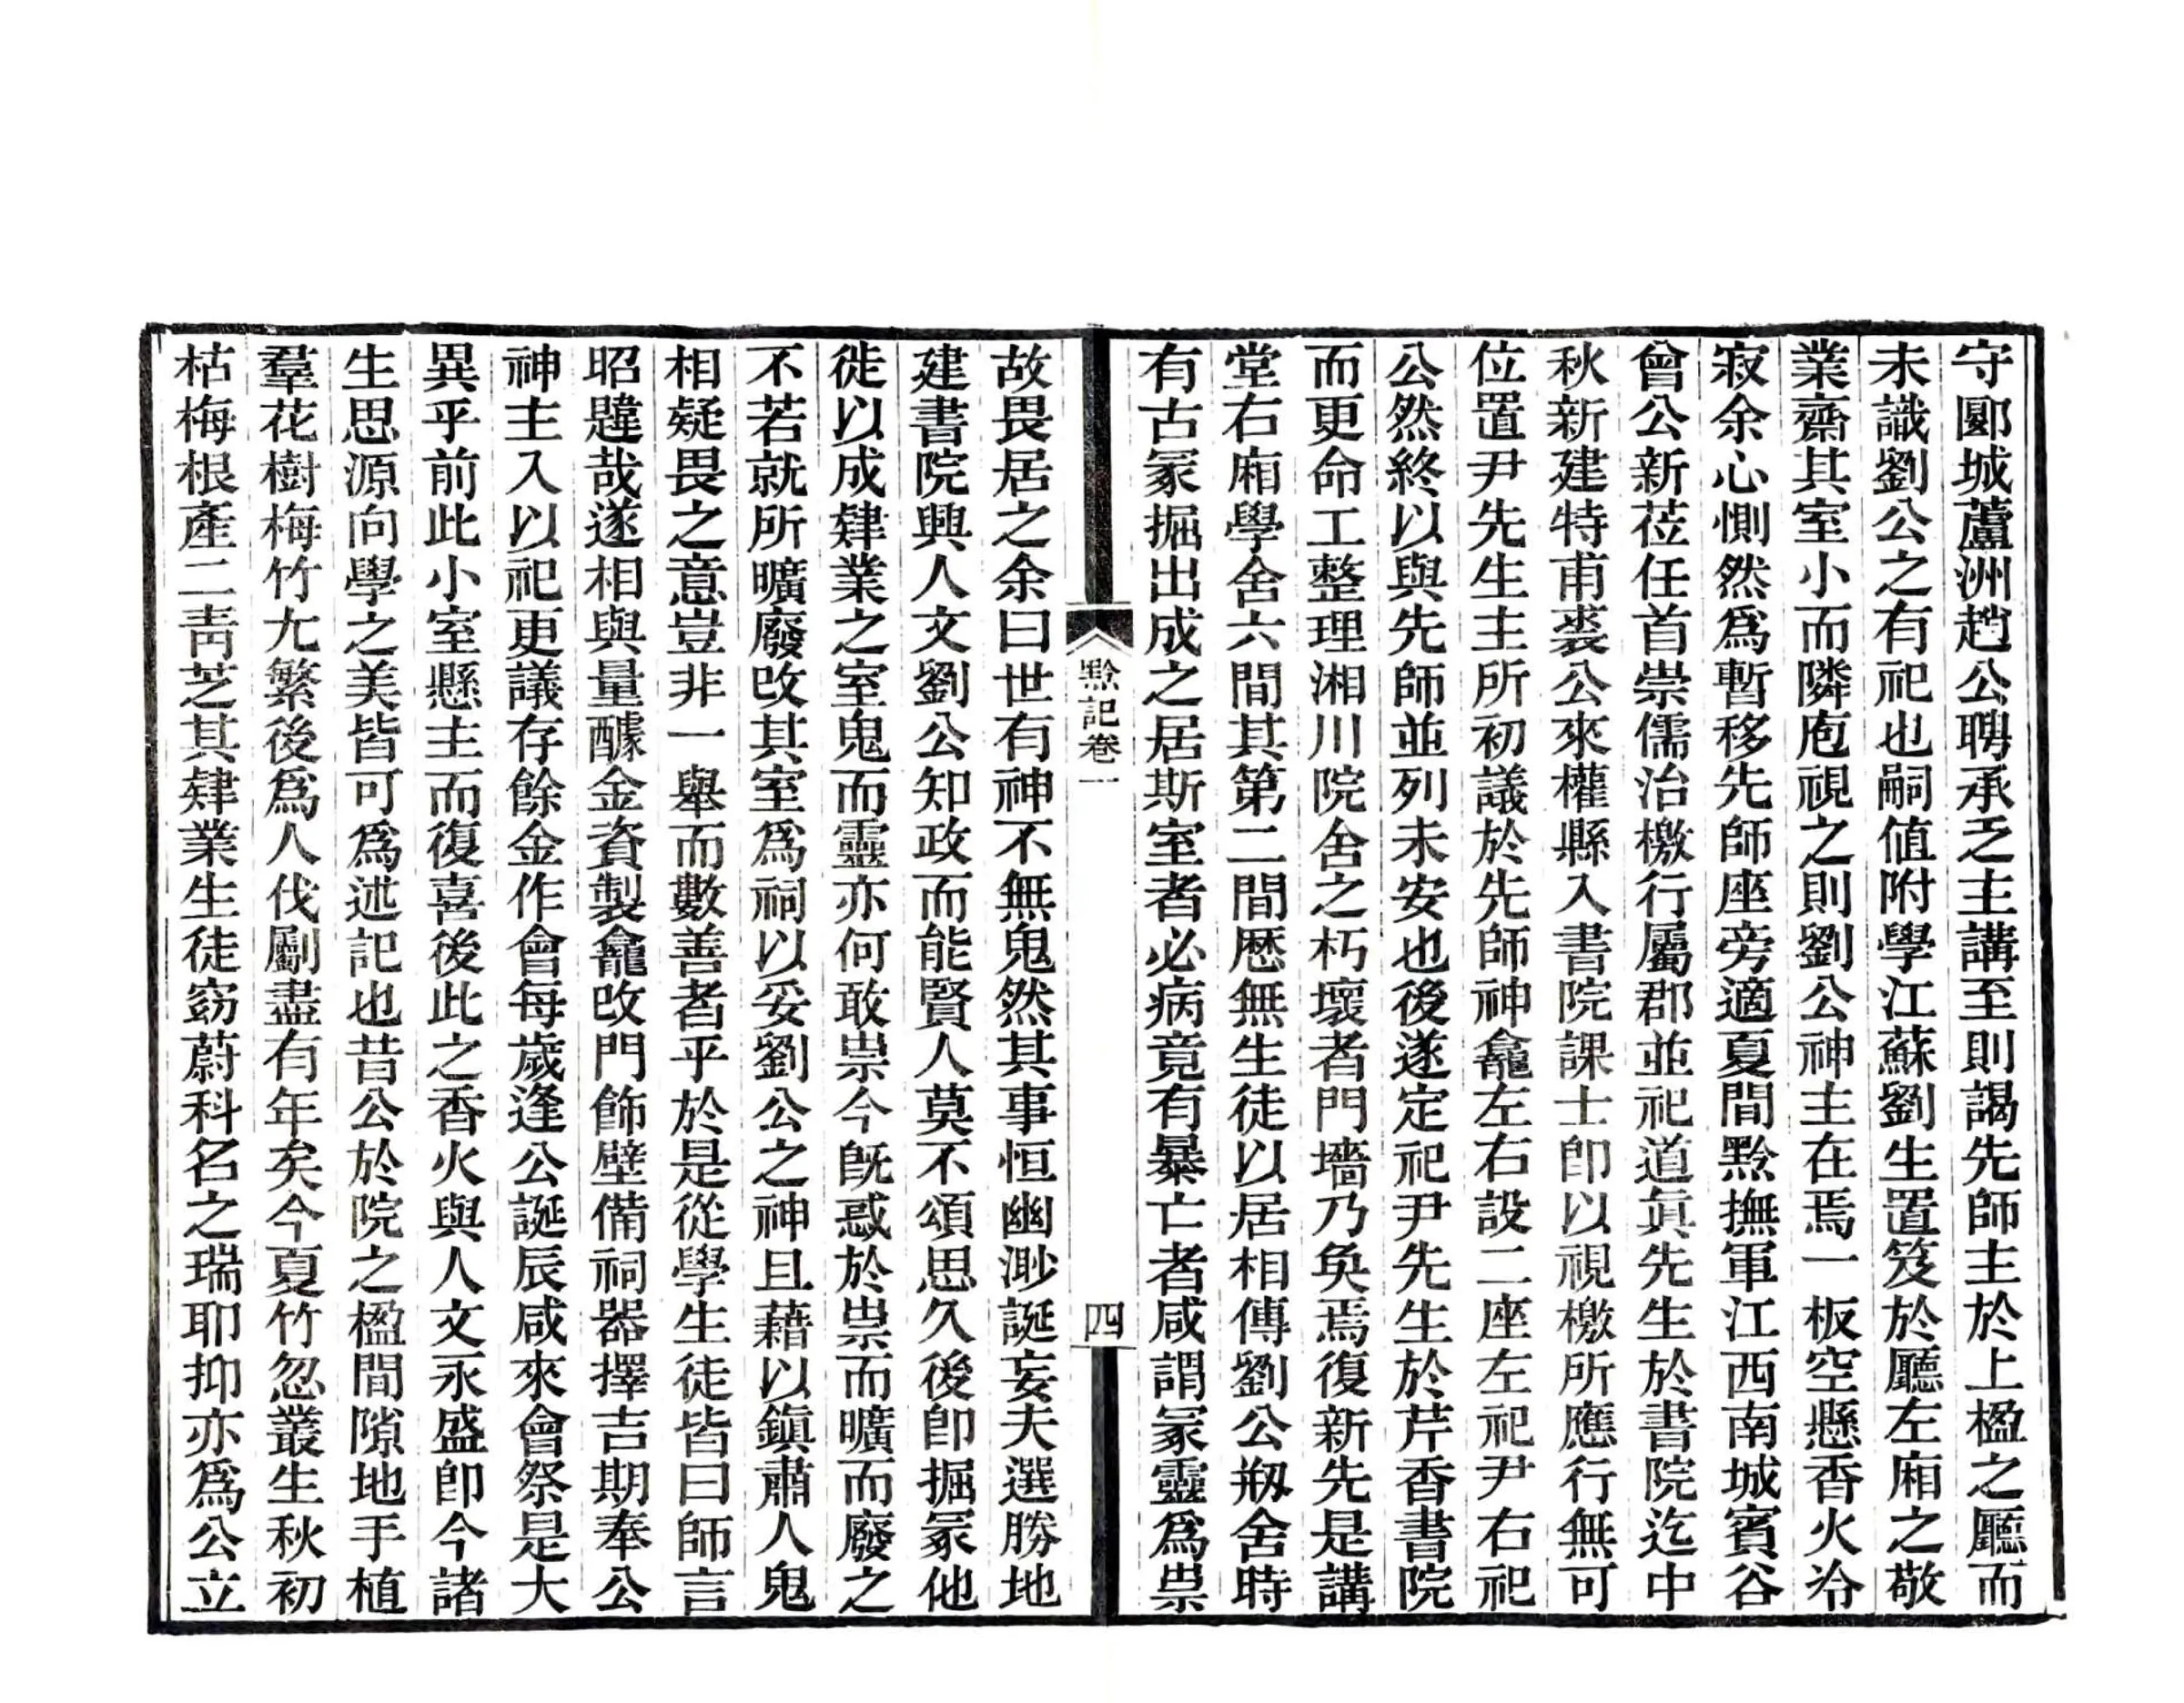 守郾城蘆洲趙公聘承乏主講至則謁先師主於上楹之廳而
未識劉公之有祀也嗣值附學江蘇劉生置笈於廳左廂之敬
業齋其室小而隣庖視之則劉公神主在焉一板空懸香火冷
寂余心惻然爲暫移先師座旁適夏間黔撫軍江西南城賓谷
曾公新莅任首崇儒治檄行屬郡並祀道眞先生於書院迄中
秋新建特甫裘公來權縣入書院課士卽以視檄所應行無可
位置尹先生主所初議於先師神龕左右設二座左祀尹右祀
公然終以與先師並列未安也後遂定祀尹先生於芹香書院
而更命工整理湘川院舍之朽壞者門墻乃奐焉復新先是講
堂右廂學舍六間其第二間歷無生徒以居相傳劉公剏舍時
有古冢掘出成之居斯室者必病竟有暴亡者咸謂冢靈爲祟
黔記卷一
四
故畏居之余曰世有神不無鬼然其事恒幽渺誕妄夫選勝地
建書院興人文劉公知政而能賢人莫不頌思久後卽掘冢他
徙以成肄業之室鬼而靈亦何敢祟今旣惑於祟而曠而廢之
不若就所曠廢改其室爲祠以妥劉公之神且藉以鎭肅人鬼
相疑畏之意豈非一舉而數善者乎於是從學生徒皆曰師言
昭韙哉遂相與量醵金資製龕改門飾壁備祠器擇吉期奉公
神主入以祀更議存餘金作會每歲逢公誕辰咸來會祭是大
異乎前此小室懸主而復喜後此之香火與人文永盛卽今諸
生思源向學之美皆可爲述記也昔公於院之楹間隙地手植
羣花樹梅竹尢繁後爲人伐劚盡有年矣今夏竹忽叢生秋初
枯梅根產二靑芝其肄業生徒窈蔚科名之瑞耶抑亦爲公立